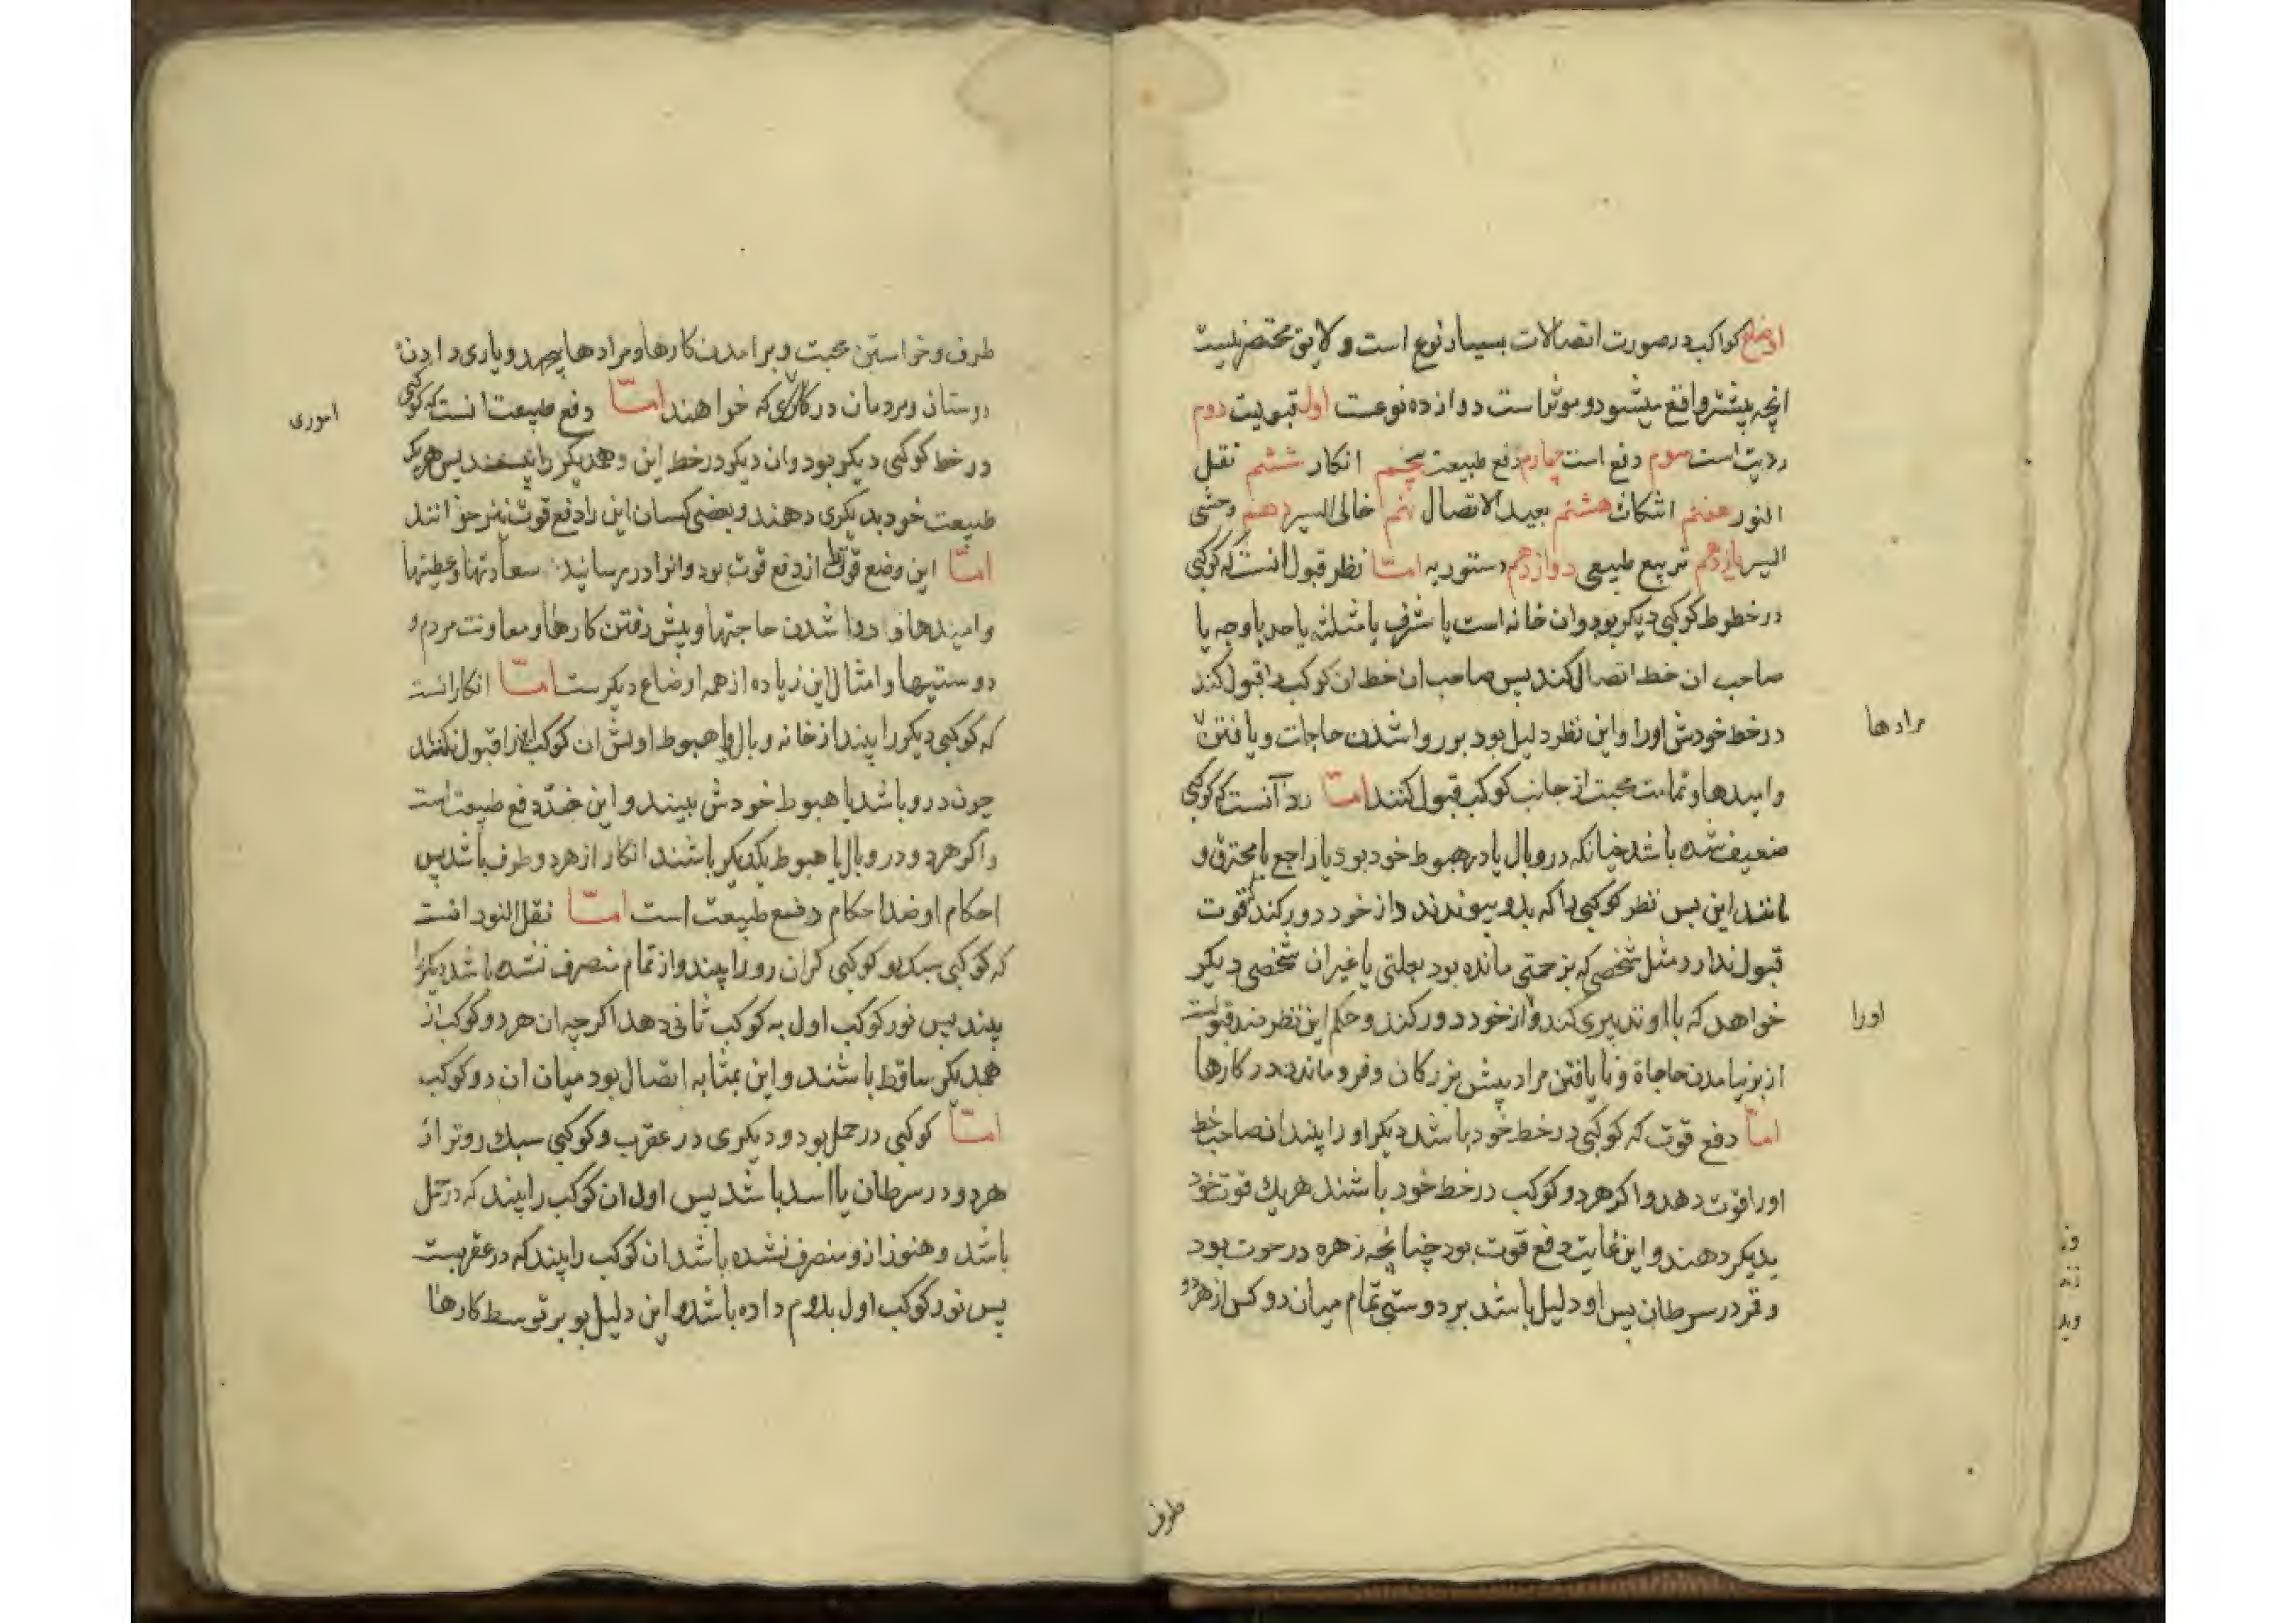 اوضاع کواکب در صورت اتصالات بسیار نوع است و لایق مختصر نیست
انچه بیشتر واقع میشود و موثر است دوازده نوعست اول قبولیت دوم
ردیت است سوم دفع است چهارم دفع طبیعت پنجم انکار ششم نقل
النور هفتم اشکات هشتم بعید الاتصال نهم خالی السیر دهم وحشی
السیر یازدهم تربیع طبیعی دوازدهم دستوریه امّا نظر قبول انست که کوکبی
در خطوط کوکبی دیکر بود وان خانه است یا شرف یا مثلثه یا حد یا وجه یا
صاحب ان خط اتصال کند پس صاحب ان خط ان کوکب را قبول کند
در خط خودش اورا واین نظر دلیل بود بر روا شدن حاجات و یافتن
مرادها
وامیدها و تمامت محبت از جانب کوکب قبول کنند امّا ردّ آنست که کوکبی
ضعیف شده باشد چنانکه در وبال یا در هبوط خود بود یا راجع یا محترق و
مانند این پس نظر کوکبی را که بدو پیوندند و از خود دور کند قوت
قبول ندارد مثل شخصی که بزحمتی مانده بود بعلتی یا غیر ان شخصی دیکر
خواهد که با او تدبیری کند و از خود دور کند و حکم این نظر ضد قبولست
اورا
از بر نیامدن حاجاة و نایافتن مراد پیش بزرکان و فرو ماندن در کارها
امّا دفع قوت که کوکبی در خط خود باشد دیکر اورا بیند ان صاحب خط
اورا قوت دهد و اکر هر دو کوکب در خط خود باشند هر یك قوت خود
بدیکر دهند و این غایت دفع قوت بود چنانچه زهره در حوت بود
و قمر در سرطان پس او دلیل باشد بر دوستی تمام میان دو کس از هر دو
طرف
طرف و خواستن محبت و برامدن کارها و مرادها بجهد و یاری دادن
دوستان و مردمان در کاری که خواهند امّا دفع طبیعت انست که کوکبی
اموری
در خط کوکبی دیکر بود وان دیکر در خط این و همدیکر را بینند پس هریک
طبیعت خود بدیکری دهند و بعضی کسان این را دفع قوت نیز خوانند
امّا این وضع قوی تر از دفع قوت بود وانوا در رسانید سعادتها و عطیتها
وامیدها و روا شدن حاجتها و پیش رفتن کارها و معاونت مردم و
دوستیها و امثال این زیاده از همه اوضاع دیکرست امّا انکار انست
که کوکبی دیکر را بیند از خانه وبال یا هبوط او پس ان کوکب اورا قبول نکند
چون در و باشد یا هبوط خودش بیند و این ضدّ دفع طبیعت است
واکر هر دو در وبال یا هبوط یکدیکر باشند انکار از هر دو طرف باشد پس
احکام او ضد احکام دفع طبیعت است امّا نقل النور انست
که کوکبی سبک رو کوکبی کران رو را بیند و از تمام منصرف نشده باشد دیکری را
بیند پس نور کوکب اول به کوکب ثانی دهد اکرچه ان هر دو کوکب از
همدیکر ساقط باشند و این بمثابه اتصال بود میان ان دو کوکب
امّا کوکبی در حمل بود و دیکری در عقرب و کوکبی سبك روتر از
هر دو در سرطان یا اسد باشد پس اول ان کوکب را بیند که در حمل
باشد و هنوز از و منصرف نشده باشد ان کوکب را بیند که در عقربست
پس نور کوکب اول بدوم داده باشد و این دلیل بود بر توسط کارها